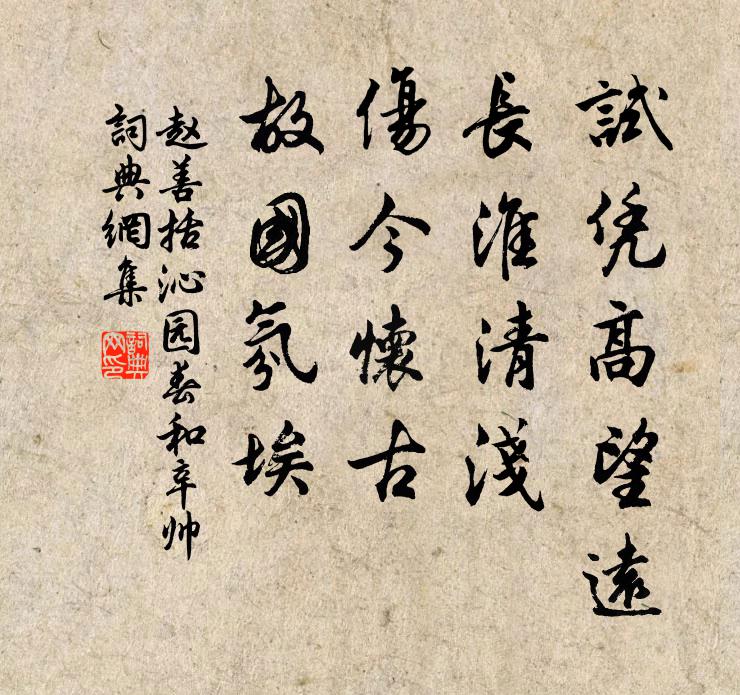 試凭高望遠
長淮清淺
傷今懷古
故國氛埃
赵善括沁园春和辛帅
詞典網集
詞典
网印